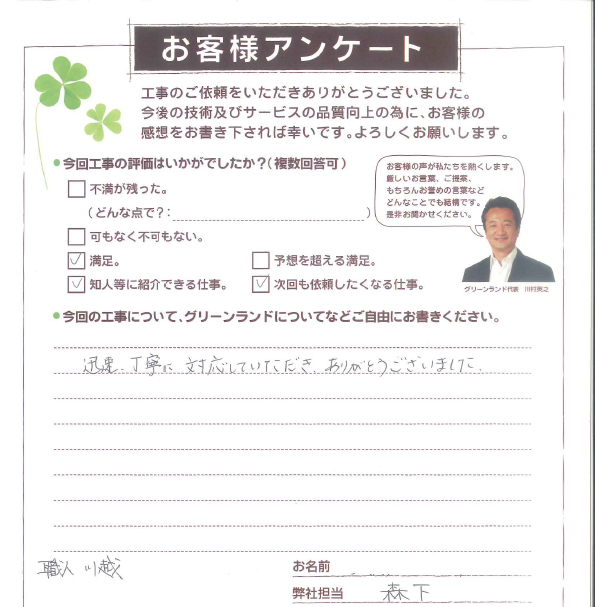 お客様アンケート
工事のご依頼をいただきありがとうございました。
今後の技術及びサービスの品質向上の為に、お客様の
感想をお書き下されば幸いです。よろしくお願いします。
●今回工事の評価はいかがでしたか？(複数回答可)
不満が残った。
(どんな点で？:                )
可もなく不可もない。
満足。
予想を超える満足。
知人等に紹介できる仕事。
次回も依頼したくなる仕事。
お客様の声が私たちを熱くします。
厳しいお言葉、ご提案、
もちろんお誉めの言葉など
どんなことでも結構です。
是非お聞かせください。
グリーンランド代表 川村英之
●今回の工事について、グリーンランドについてなどご自由にお書きください。
迅速、丁寧に対応していただき、ありがとうございました。
職人 川越
お名前
弊社担当 森下